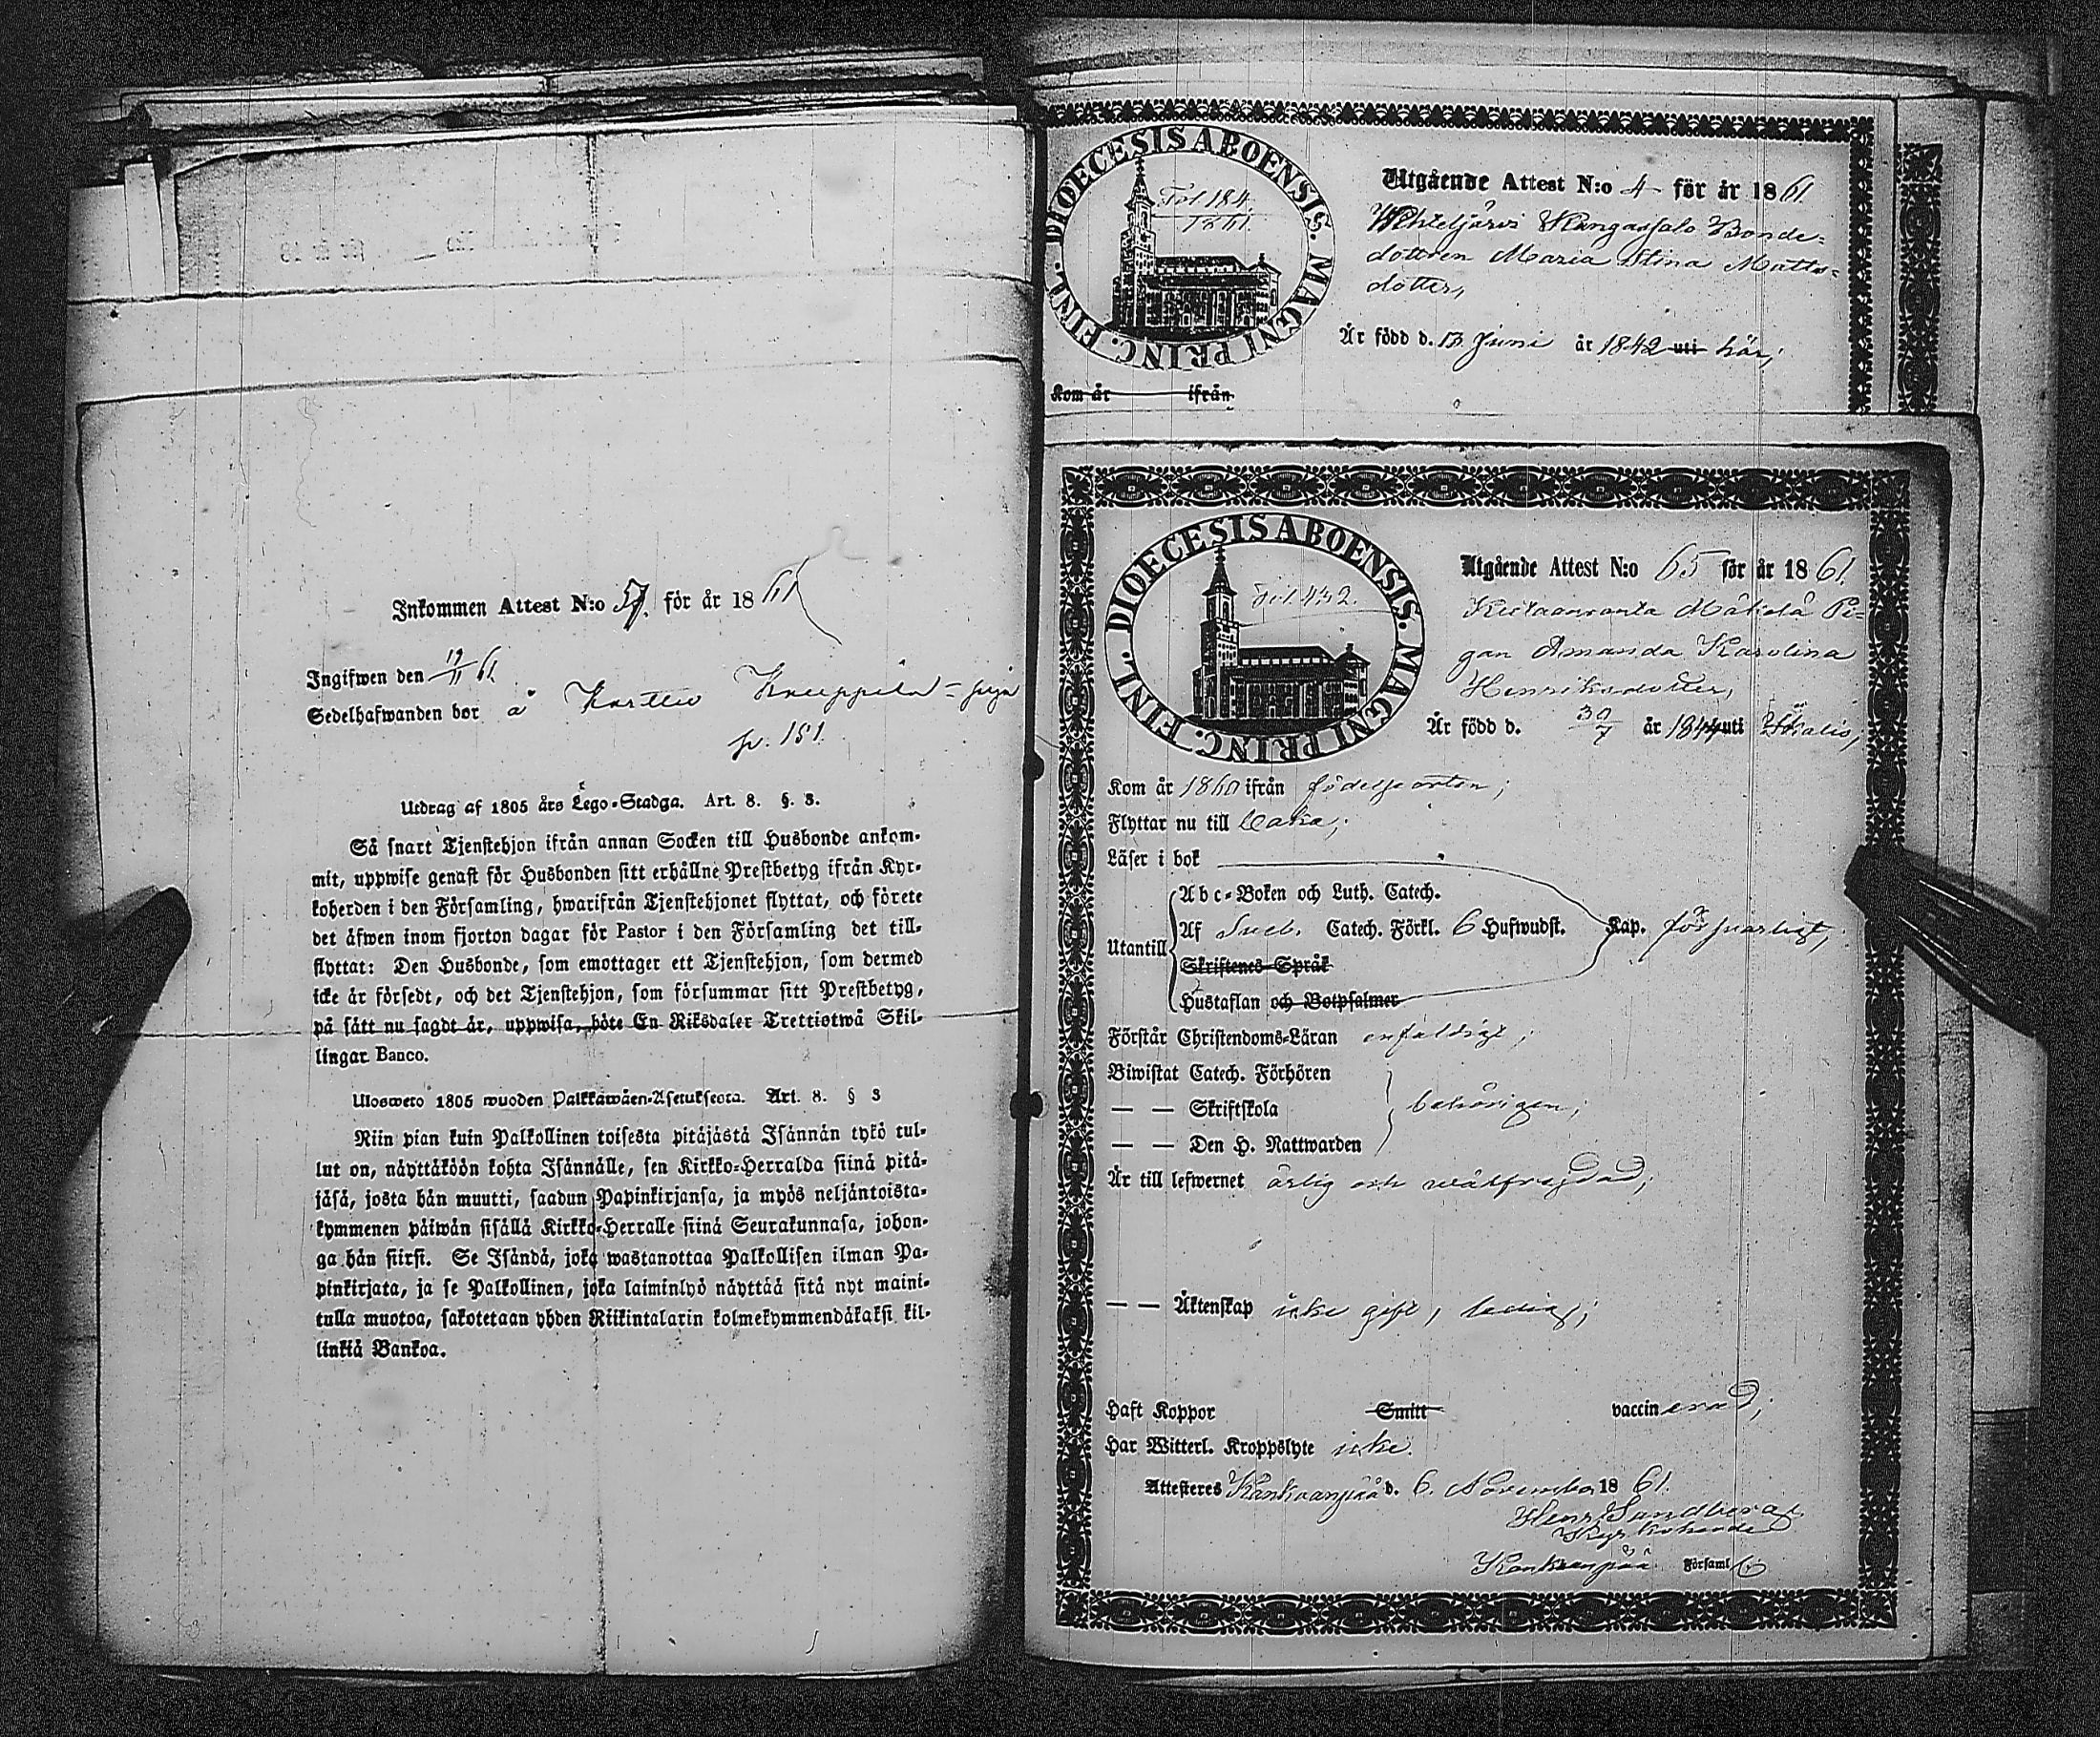 Inkommen Attest N:o 57. för år 1861
Ingifwen den 19/11 61.
Sedelhafwanden bor å Karttu Knuppila
p. 151.
Utdrag af 1805 års Lego-Stadga. Art. 8. §. 3.
Så snart Tjenstehjon ifrån annan Socken till Husbonde ankom-
mit, uppwise genast för Husbonden sitt erhållne Prestbetyg ifrån Kyr-
koherden i den Församling, hwarifrån Tjenstehjonet flyttat, och förete
det äfwen inom fjorton dagar för Pastor i den Församling det till-
flyttat: Den Husbonde, som emottager ett Tjenstehjon, som dermed
icke är försedt, och det Tjenstehjon, som försummar sitt Prestbetyg,
på sätt nu sagdt är, uppwisa, böte En Riksdaler Trettiotwå Skil-
lingar Banco.
Ulosweto 1805 wuoden Palkkawäen-Asetuksesta. Art. 8. § 3
Niin pian kuin Palkollinen toisesta pitäjästä Isännän tykö tul-
lut on, näyttäköön kohta Isännälle, sen Kirkko-Herralda siinä pitä-
jäsä, josta hän muutti, saadun Papinkirjansa, ja myös neljäntoista-
kymmenen päiwän sisällä Kirkko-Herralle siinä Seurakunnasa, johon-
ga hän siirsi. Se Isändä, joka wastanottaa Palkollisen ilman Pa-
pinkirjata, ja se Palkollinen, joka laiminlyö näyttää sitä nyt maini-
tulla muotoa, sakotetaan yhden Riikintalarin kolmekymmendäkaksi kil-
linkiä Bankoa.
DIOECESIS ABOENSIS. MAGNI PRINC. FINL.
Fol 184.
1861.
Utgående Attest N:o 4 för år 1861
Wehteljärwi Kangassalo Bonde-
dottren Maria Stina Matts-
dotter,
Är född d. 13 Juni år 1842 uti här;
Kom år ifrån
DIOECESIS ABOENSIS. MAGNI PRINC. FINL.
Fol. 432.
Utgående Attest N:o 65 för år 1861.
Mäkelä Pi-
gan Amanda Karolina
Henriksdotter,
Är född d. 30/7 år 1844 uti Ikalis,
Kom år 1860 ifrån födelseorten;
Flyttar nu till
Läser i bok
Utantill
Abc-Boken och Luth. Catech.
Af Sueb. Catech. Förkl. 6 Hufwudst. Kap. försvarligt,
Skriftenes Språk
Hustaflan och Botpsalmer
Förstår Christendoms-Läran enfaldigt;
Biwistat Catech. Förhören
— — Skriftskola behörigen;
— — Den H. Nattwarden
Är till lefwernet ärlig och wälfrejdad;
— — Äktenskap icke gift, ledig;
Haft Koppor Smitt vaccinerad;
Har Witterl. Kroppslyte icke.
Attesteres Kankaanpää d. 6. November 1861.
Henr. Sandberg
Kyrkoherde
Kankaanpää Församl.